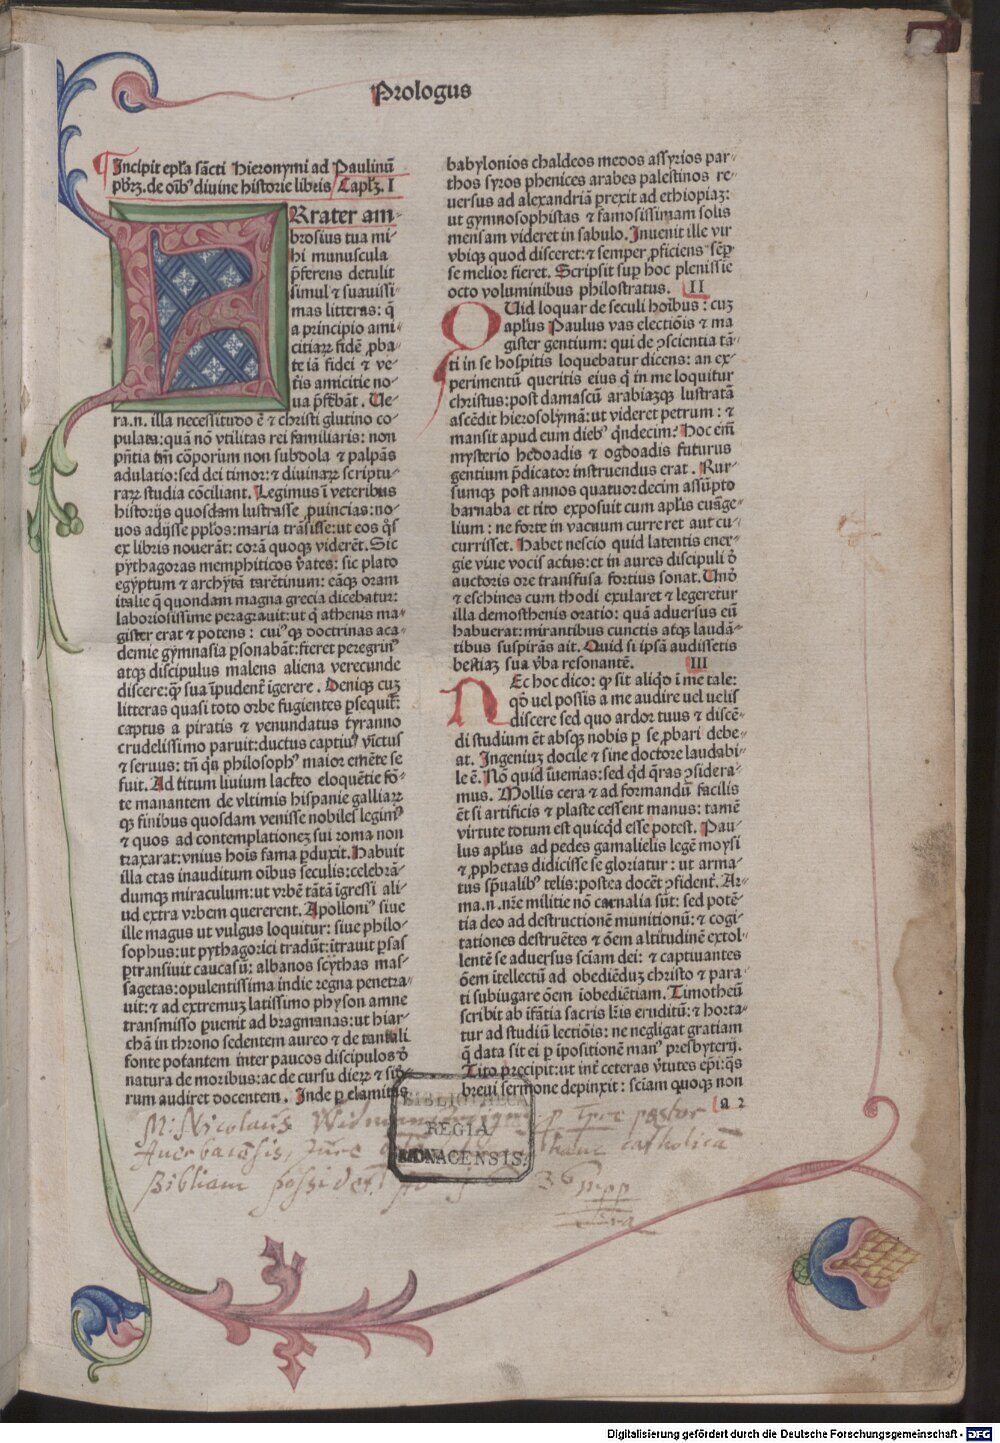 Prologus
Incipit epl̃a sancti Hieronymi ad Paulinũ
p̃brꝫ. de oĩbꝰ diuine historie libris Capl̃ꝫ. I
Rrater am-
brosius tua mi-
hi munuscula
p̃ferens detulit
simul ⁊ suauissi-
mas litteras: q̃
a principio ami-
citiaꝝ fidẽ ꝓba-
te iã fidei ⁊ ve-
t̃is amicitie no-
ua p̃fẽbãt. Ue-
ra.n. illa necessitudo ẽ ⁊ christi glutino co-
pulata: quã nõ vtilitas rei familiaris: non
pñtia tm̃ cõporum non subdola ⁊ palpãs
adulatio: sed dei timor: ⁊ diuinaꝝ scriptu-
raꝝ studia cõciliant. Legimus ĩ veteribus
historijs quosdam lustrasse ꝓuincias: no-
uos adijsse pp̃los: maria trãsisse: ut eos q̃s
ex libris nouerãt: corã quoqꝫ viderẽt. Sic
pythagoras memphiticos ṽates: sic plato
egyptum ⁊ archytã tarẽtinum: eãqꝫ oram
italie q̃ quondam magna grecia dicebatur:
laboriosissime peragrauit: ut q̃ athenis ma-
gister erat ⁊ potens: cuiꝰqꝫ doctrinas aca-
demie gymnasia ꝑsonabãt: fieret peregrinꝰ
atqꝫ discipulus malens aliena verecunde
discere: qꝫ sua ĩpudent̃ ĩgerere. Deniqꝫ cuꝫ
litteras quasi toto orbe fugientes ꝑsequit̃:
captus a piratis ⁊ venundatus tyranno
crudelissimo paruit: ductus captiuꝰ vĩctus
⁊ seruus: tñ q̃a philosophꝰ maior emẽte se
fuit. Ad titum liuium lacteo eloquẽtie fõ-
te manantem de vltimis hispanie galliaꝝ
qꝫ finibus quosdam venisse nobiles legimꝰ
⁊ quos ad contemplationeꝫ sui roma non
traxarat: vnius hoĩs fama ꝑduxit. Habuit
illa etas inauditum oĩbus seculis: celebrã-
dumqꝫ miraculum: ut vrbẽ tãtã ĩgressi ali-
ud extra vrbem quererent. Apolloniꝰ siue
ille magus ut vulgus loquitur: siue philo-
sophus: ut pythagorici tradũt: ĩtrauit ꝑsas
ꝑtransiuit caucasũ: albanos scythas mas-
sagetas: opulentissima indie regna penetra-
uit: ⁊ ad extremuꝫ latissimo physon amne
transmisso ꝑuenit ad bragmanas: ut hiar-
chã in throno sedentem aureo ⁊ de tantali
fonte potantem inter paucos discipulos ð
natura de moribus: ac de cursu dieꝝ ⁊ sid̃-
rum audiret docentem. Inde ꝑ elamitas
babylonios chaldeos medos assyrios par-
thos syros phenices arabes palestinos re-
uersus ad alexandriã ꝑrexit ad ethiopiaꝫ:
ut gymnosophistas ⁊ famosissimam solis
mensam videret in sabulo. Inuenit ille vir
vbiqꝫ quod disceret: ⁊ semper ꝓficiens sẽꝑ
se melior fieret. Scripsit sup hoc plenissie
octo voluminibus philostratus. II
QUid loquar de seculi hoĩbus: cuꝫ
apl̃us Paulus vas electiõis ⁊ ma
gister gentium: qui de ꝯscientia tã-
ti in se hospitis loquebatur dicens: an ex-
perimentũ queritis eius q̃ in me loquitur
christus: post damascũ arabiaꝫqꝫ lustratã
ascẽdit hierosolymã: ut videret petrum: ⁊
mansit apud eum diebꝰ q̃ndecim: Hoc em̃
mysterio hebdoadis ⁊ ogdoadis futurus
gentium p̃dicator instruendus erat. Rur-
sumqꝫ post annos quatuordecim assũpto
barnaba et tito exposuit cum apl̃is euãge-
lium: ne forte in vacuum curreret aut cu-
currisset. Habet nescio quid latentis ener-
gie viue vocis actus: et in aures discipuli ð
auctoris ore transfusa fortius sonat. Unð
⁊ eschines cum rhodi exularet ⁊ legeretur
illa demosthenis oratio: quã aduersus eũ
habuerat: mirantibus cunctis atqꝫ laudã-
tibus suspirãs ait. Quid si ipsã audissetis
bestiaꝫ sua ṽba resonantẽ. III
NEc hoc dico: qꝫ sit aliq̃d ĩ me tale:
q̃ð uel possis a me audire uel uelis
discere sed quo ardor tuus ⁊ discẽ-
di studium ẽt absqꝫ nobis ꝑ se ꝓbari debe-
at. Ingeniuꝫ docile ⁊ sine doctore laudabi-
le ẽ. Nõ quid ĩuenias: sed q̃d q̃ras ꝯsidera-
mus. Mollis cera ⁊ ad formandũ facilis
ẽt si artificis ⁊ plaste cessent manus: tamẽ
virtute totum est quicq̃d esse potest. Pau-
lus apl̃us ad pedes gamalielis legẽ moysi
⁊ ꝓphetas didicisse se gloriatur: ut arma-
tus sp̃ualibꝰ telis: postea docẽt ꝯfident̃. Ar-
ma.n.nr̃e militie nõ carnalia sũt: sed potẽ-
tia deo ad destructionẽ munitionũ: ⁊ cogi-
tationes destruẽtes ⁊ õem altitudinẽ extol-
lentẽ se aduersus sciam dei: ⁊ captiuantes
õem ĩtellectũ ad obediẽduꝫ christo ⁊ para-
ti subiugare õem ĩobediẽtiam. Timotheũ
scribit ab ĩfãtia sacris l̃ris eruditũ: ⁊ horta-
tur ad studiũ lectiõis: ne negligat gratiam
q̃ data sit ei ꝑ ĩpositionẽ manꝰ presbyterij.
Tito p̃cipit: ut int̃ ceteras ṽtutes ep̃i: q̃s
breui sermone depinxit: sciam quoqꝫ non
a 2
M: Nicolaus
Auerbacẽsis, hanc catholicã
Bibliam possidet.
BIBLIOTHECA
REGIA
MONACENSIS.
Digitalisierung gefördert durch die Deutsche Forschungsgemeinschaft - DFG